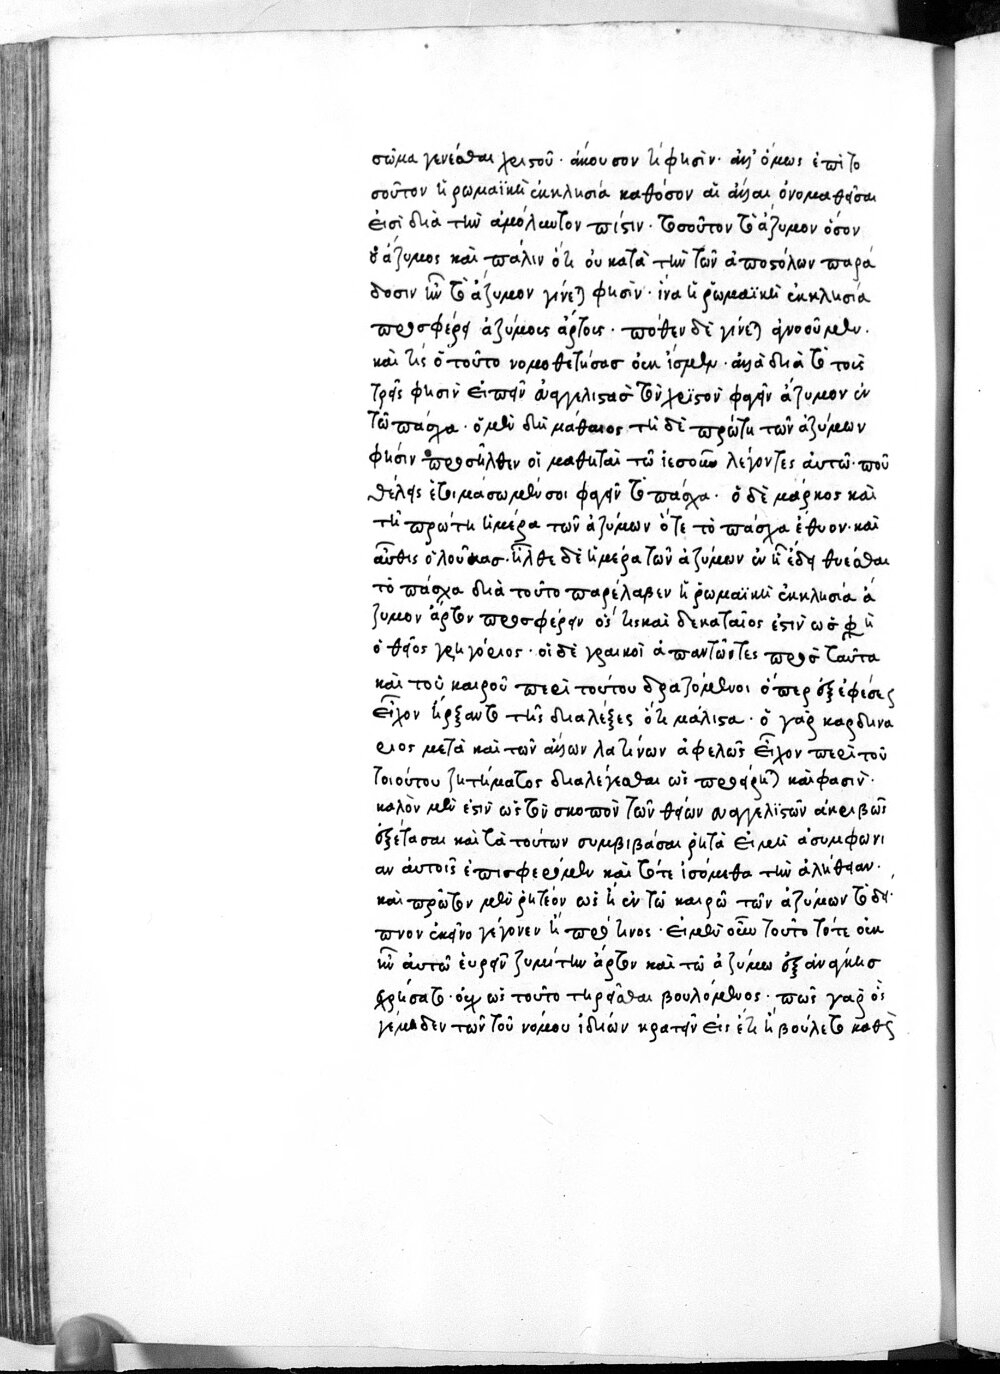 σῶμα γενέσθαι χριστοῦ· ἄκουσον τί φησίν· ἀλλ' ὅμως ἐπὶ το
σοῦτον ἡ ρωμαϊκὴ ἐκκλησία καθόσον αἱ ἄλλαι ὀνομασθεῖσαι
εἰσὶ διὰ τὴν ἀμόλυντον πίστιν· τοσοῦτον τὸ ἄζυμον ὅσον
ὁ ἄζυμος καὶ πάλιν ὅτι οὐ κατὰ τὴν τῶν ἀποστόλων παρά
δοσιν ἦν τὸ ἄζυμον γίνεται φησίν· ἵνα ἡ ῥωμαϊκὴ ἐκκλησία
προσφέρη ἀζύμοις ἄρτοις· πόθεν δὲ γίνεται ἀγνοοῦμεν·
καὶ τίς ὁ τοῦτο νομοθετήσας οὐκ ἴσμεν· ἀλλὰ διὰ τὸ τοὺς
τρεῖς φησὶν εἰπεῖν εὐαγγελιστὰς τὸν χριστὸν φαγεῖν ἄζυμον ἐν
τῶ πάσχα· ὁ μὲν δὴ μάθαιος τῆ δὲ πρώτη τῶν ἀζύμων
φησίν προσῆλθεν οἱ μαθηταὶ τῶ ἰησοῦ λέγοντες αὐτῶ· ποῦ
θέλεις ἑτοιμάσωμέν σοι φαγεῖν τὸ πάσχα· ὁ δὲ μάρκος καὶ
τῆ πρώτη ἡμέρα τῶν ἀζύμων ὅτε τὸ πάσχα ἔθυον· καὶ
αὖθις ὁ λουκᾶς· ἦλθε δὲ ἡ μέρα τῶν ἀζύμων ἐν ἧ ἔδει θυέσθαι
τὸ πάσχα διὰ τοῦτο παρέλαβεν ἡ ῥωμαϊκὴ ἐκκλησία ἄ
ζυμον ἄρτον προσφέρειν ὅστις καὶ δεκαταῖος ἐστὶν ὥς φησι
ὁ θεῖος γρηγόριος· οἱ δὲ γραικοὶ ἀπαντῶντες πρὸς ταῦτα
καὶ τοῦ καιροῦ περὶ τούτου δραξόμενοι ὅπερ ἐξ ἐφέσεως
εἶχον ἤρξαντο τῆς διαλέξεως ὅτι μάλιστα· ὁ γὰρ καρδινα
ριος μετὰ καὶ τῶν ἄλλων λατίνων ἀφελῶς εἶχον περὶ τοῦ
τοιούτου ζητήματος διαλέγεσθαι ὡς προείρηται καὶ φασίν·
καλὸν μὲν ἐστὶν ὡς τὸν σκοπὸν τῶν θείων εὐαγγελιστῶν ἀκριβῶς
ἐξετάσαι καὶ τὰ τούτων συμβιβάσαι ῥητὰ εἰ μὴ ἀσυμφωνί
αν αὐτοῖς ἐπισφέρομεν καὶ τότε ἰσόμεθα τὴν ἀλήθειαν·
καὶ πρῶτον μὲν ῥητέον ὡς ἢ ἐν τῶ καιρῶ τῶν ἀζύμων τὸ δεῖ
πνον ἐκεῖνο γέγονεν ἢ πρό τινος· εἰ μὲν οὖν τοῦτο τότε οὐκ
ἦν αὐτῶ εὑρεῖν ζυμίτην ἄρτον καὶ τῶ ἀζύμω ἐξ ἀνάγκης
ἐχρήσατο· οὐχ ὡς τοῦτο τηρεῖσθαι βουλόμενος· πῶς γὰρ ὅς
γε μηδὲν τῶν τοῦ νόμου ἰδίων κρατεῖν εἰς ἔτι ἠβούλετο καθὼς